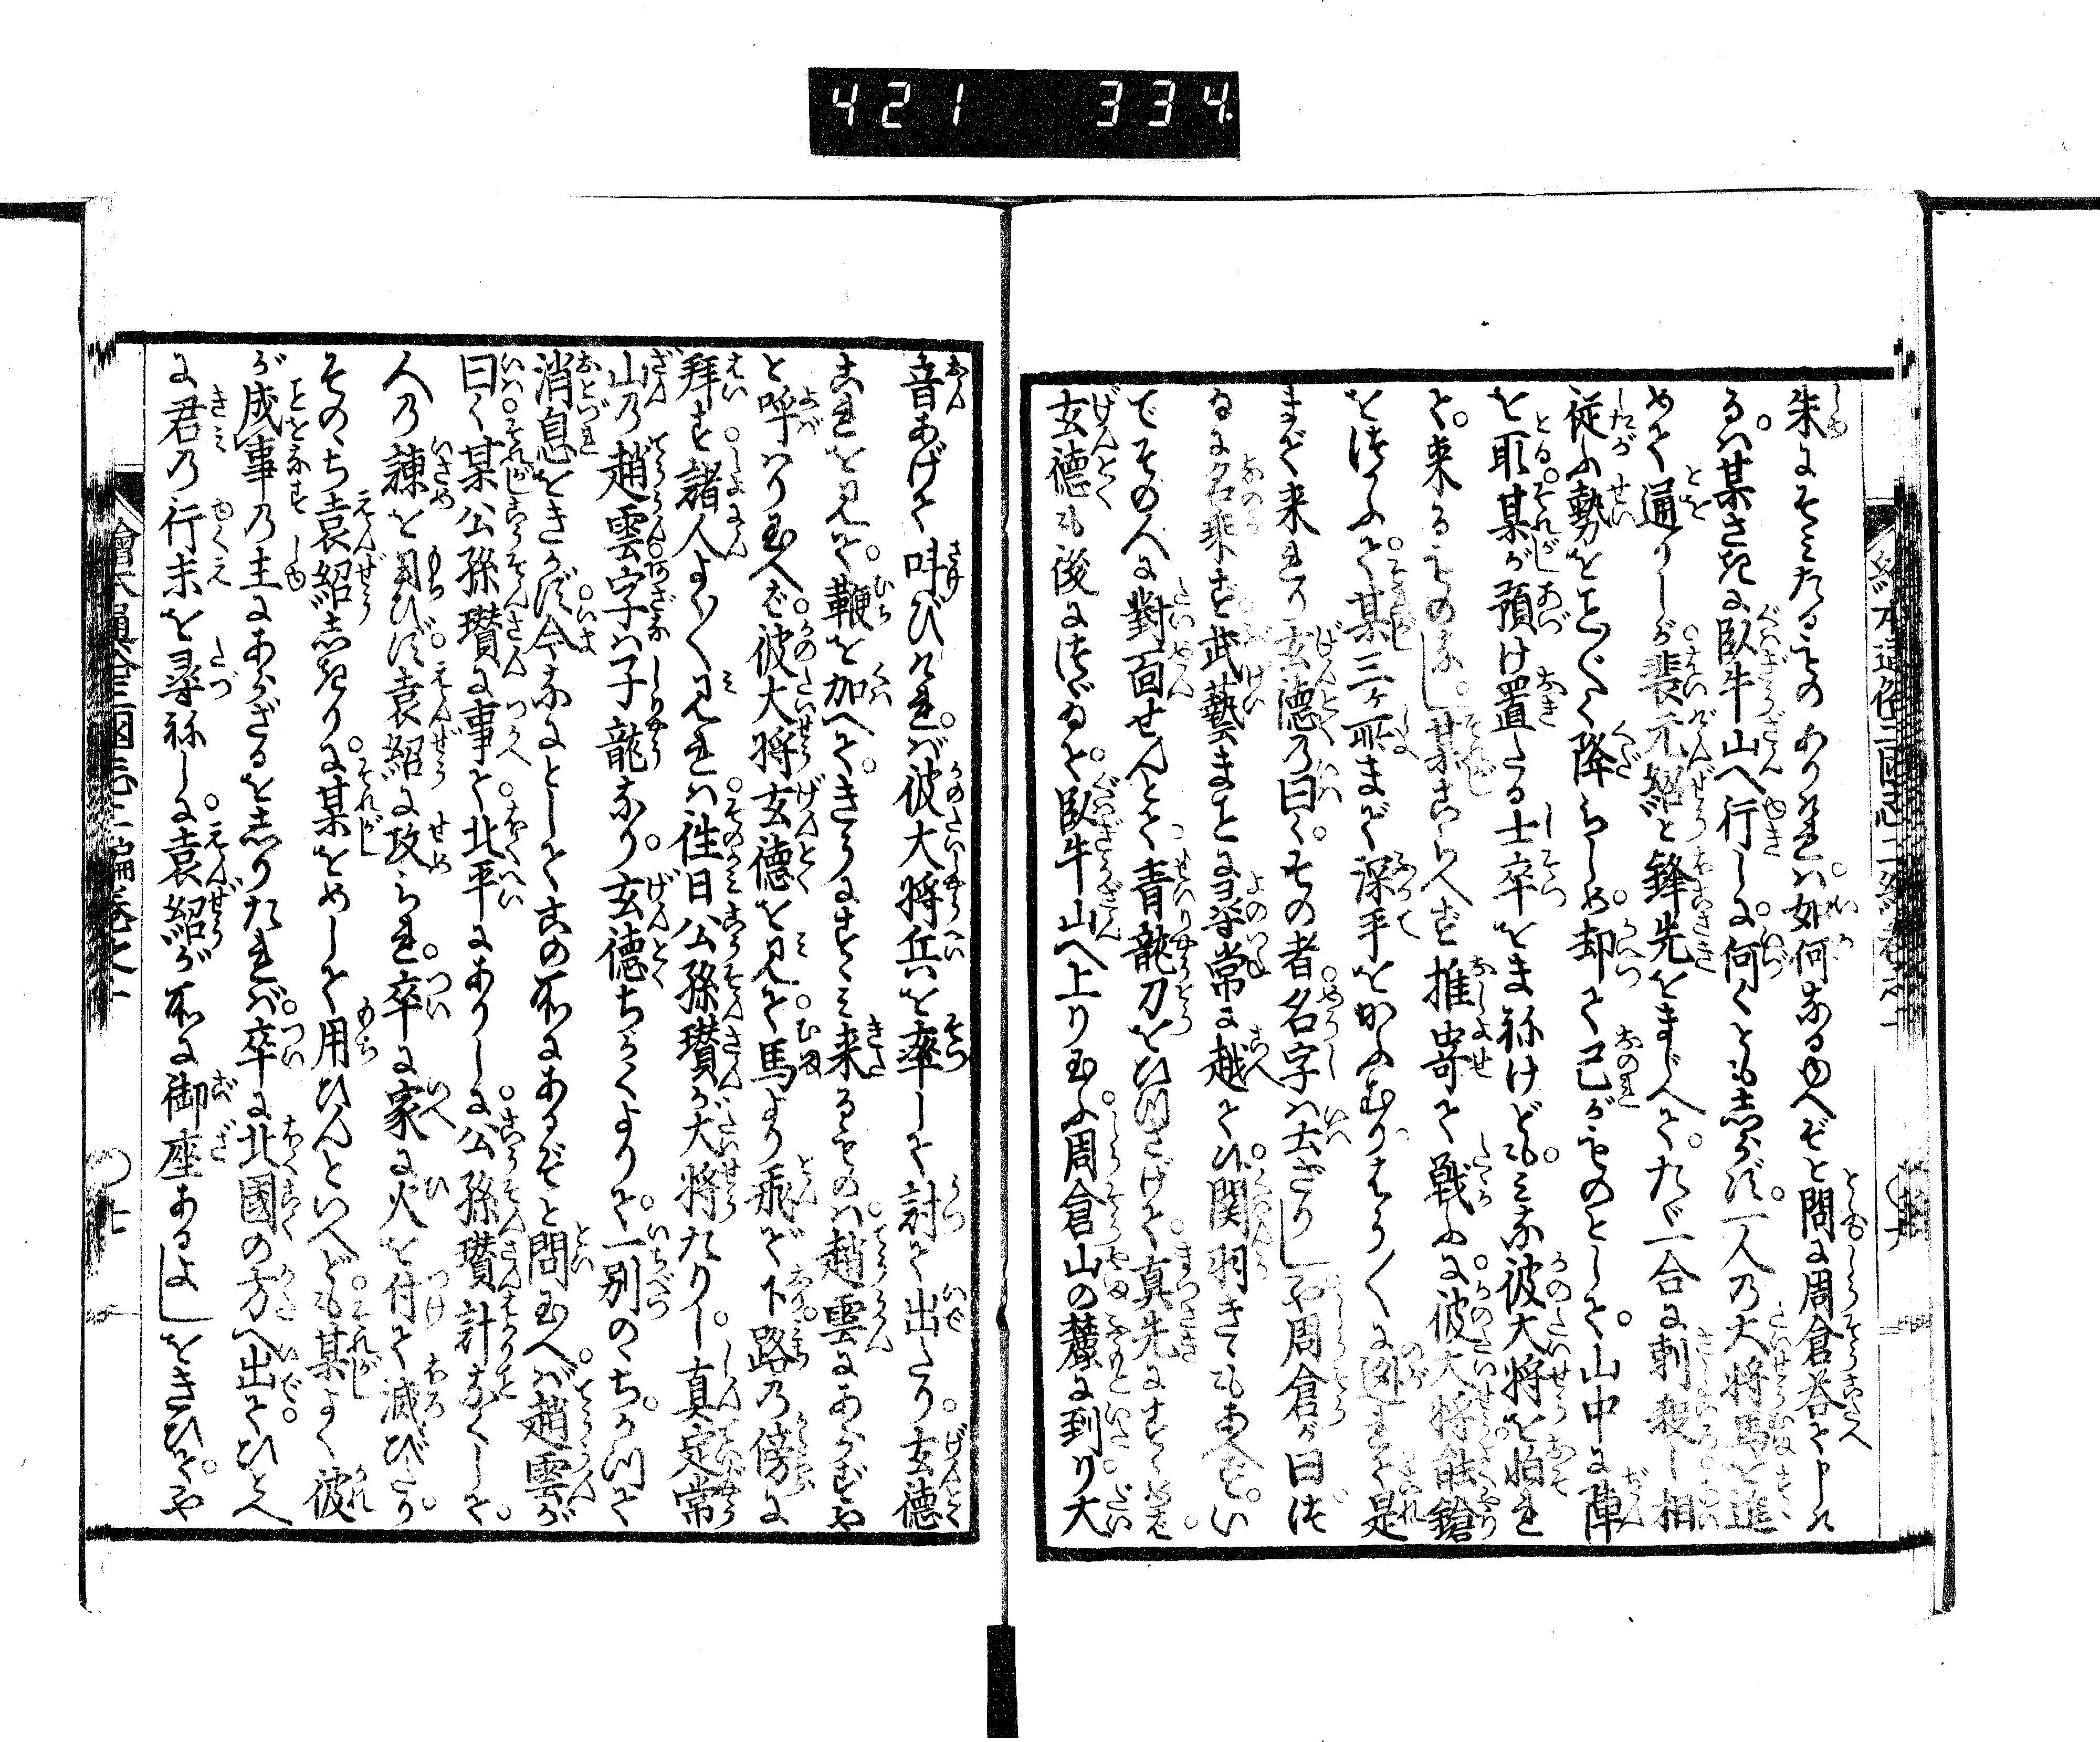 421 334.
朱にそみたるものありければ。如何なるゆへぞと問に周倉答て申け
るは。某さきに臥牛山へ行しに。何くとも志らず。一人の大将馬を進
めて通りしが。裴元紹と鋒先をまじへて。たゞ一合に刺殺し相
従ふ勢をこと〴〵く降らしめ。却て己がものとして。山中に陣
を取。某が預け置たる士卒をまねけども。みな彼大将を怕れ
て。来るものなし。某こらへず推寄て戦ふに。彼大将能鎗
をつかふて。某三ヶ所まで深手をかふむり。はう〳〵に逃れて是
まで来れり。玄徳の曰く。その者名字は云ざりしか。周倉が曰。いま
だ名乗ず。武藝まことに尋常に越たり。関羽きくもあへず。い
でその人に對面せんとて。青龍刀をひつさげて。真先にすゝめば。
玄徳も後につゞゐて。臥牛山へ上り玉ふ。周倉山の麓に到り。大
音あげて呌びければ。彼大将兵を率して討て出たり。玄徳
これを見て。鞭を加へて。さきにすゝみ来るものは。趙雲にあらずや
と呼はり玉へば。彼大将玄徳を見て。馬より飛で下。路の傍に
拝す。諸人よく〳〵見れば往日公孫瓚が大将たりし。真定常
山の趙雲字は子龍なり。玄徳ちかくよりて。一別のゝち。かつて
消息をきかず。今なにとしてこの所にあるぞと問玉へば。趙雲が
曰く。某公孫瓚に事て。北平にありしに。公孫瓚計なくして。
人の諫を用ひず。袁紹に攻られ。卒に家に火を付て滅びたり。
そのゝち袁紹志きりに某をめして用ひんといへども。某よく彼
が成事の主にあらざるを志りたれば。卒に北國の方へ出て。ひとへ
に君の行末を尋ねしに。袁紹が所に御座あるよしをきひて。や